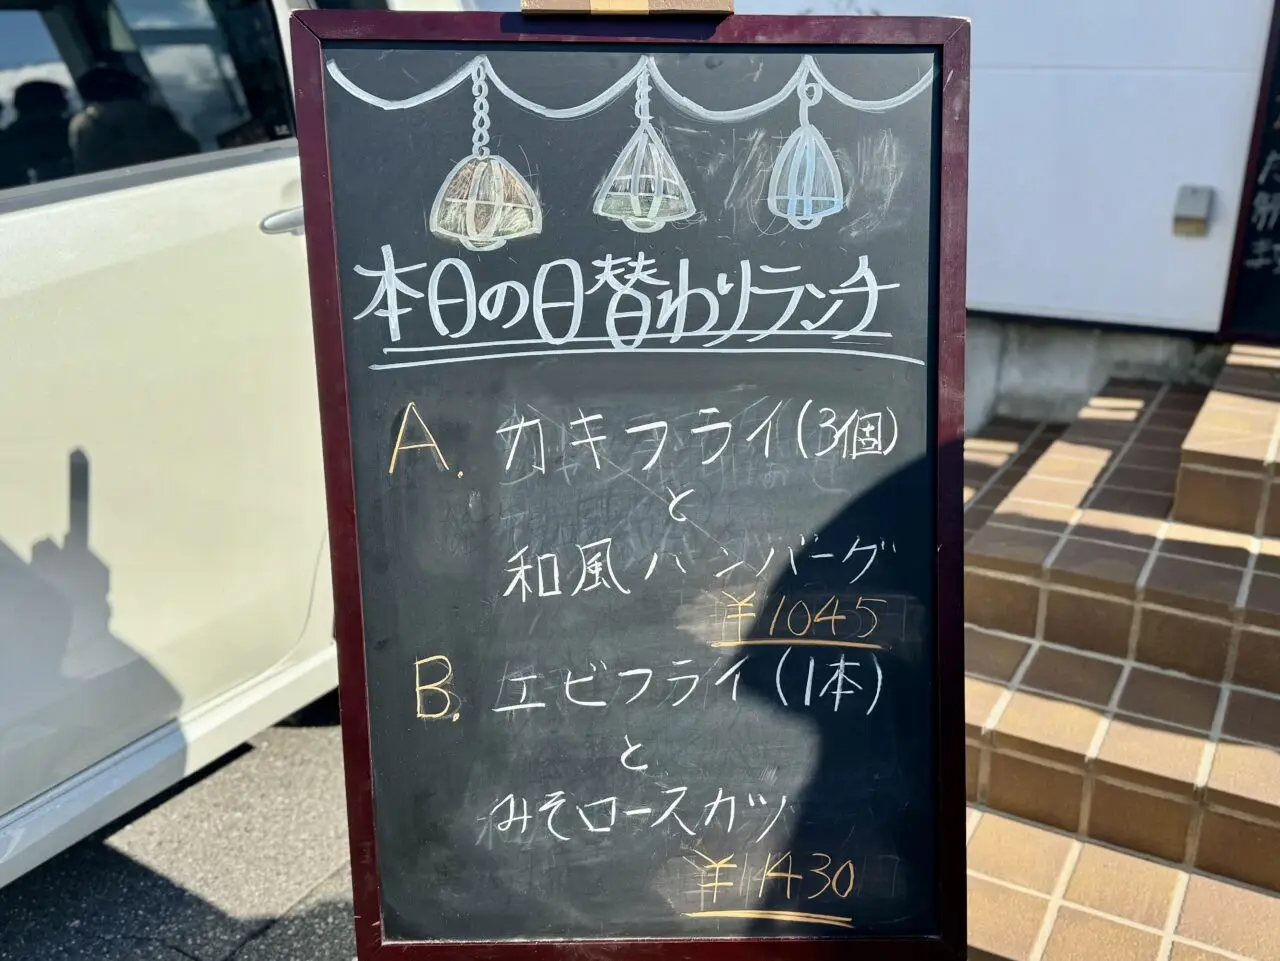 本日の日替わりランチ
A. カキフライ(3個)
と
和風ハンバーグ
¥1045
B. エビフライ(1本)
と
みそロースカツ
¥1430